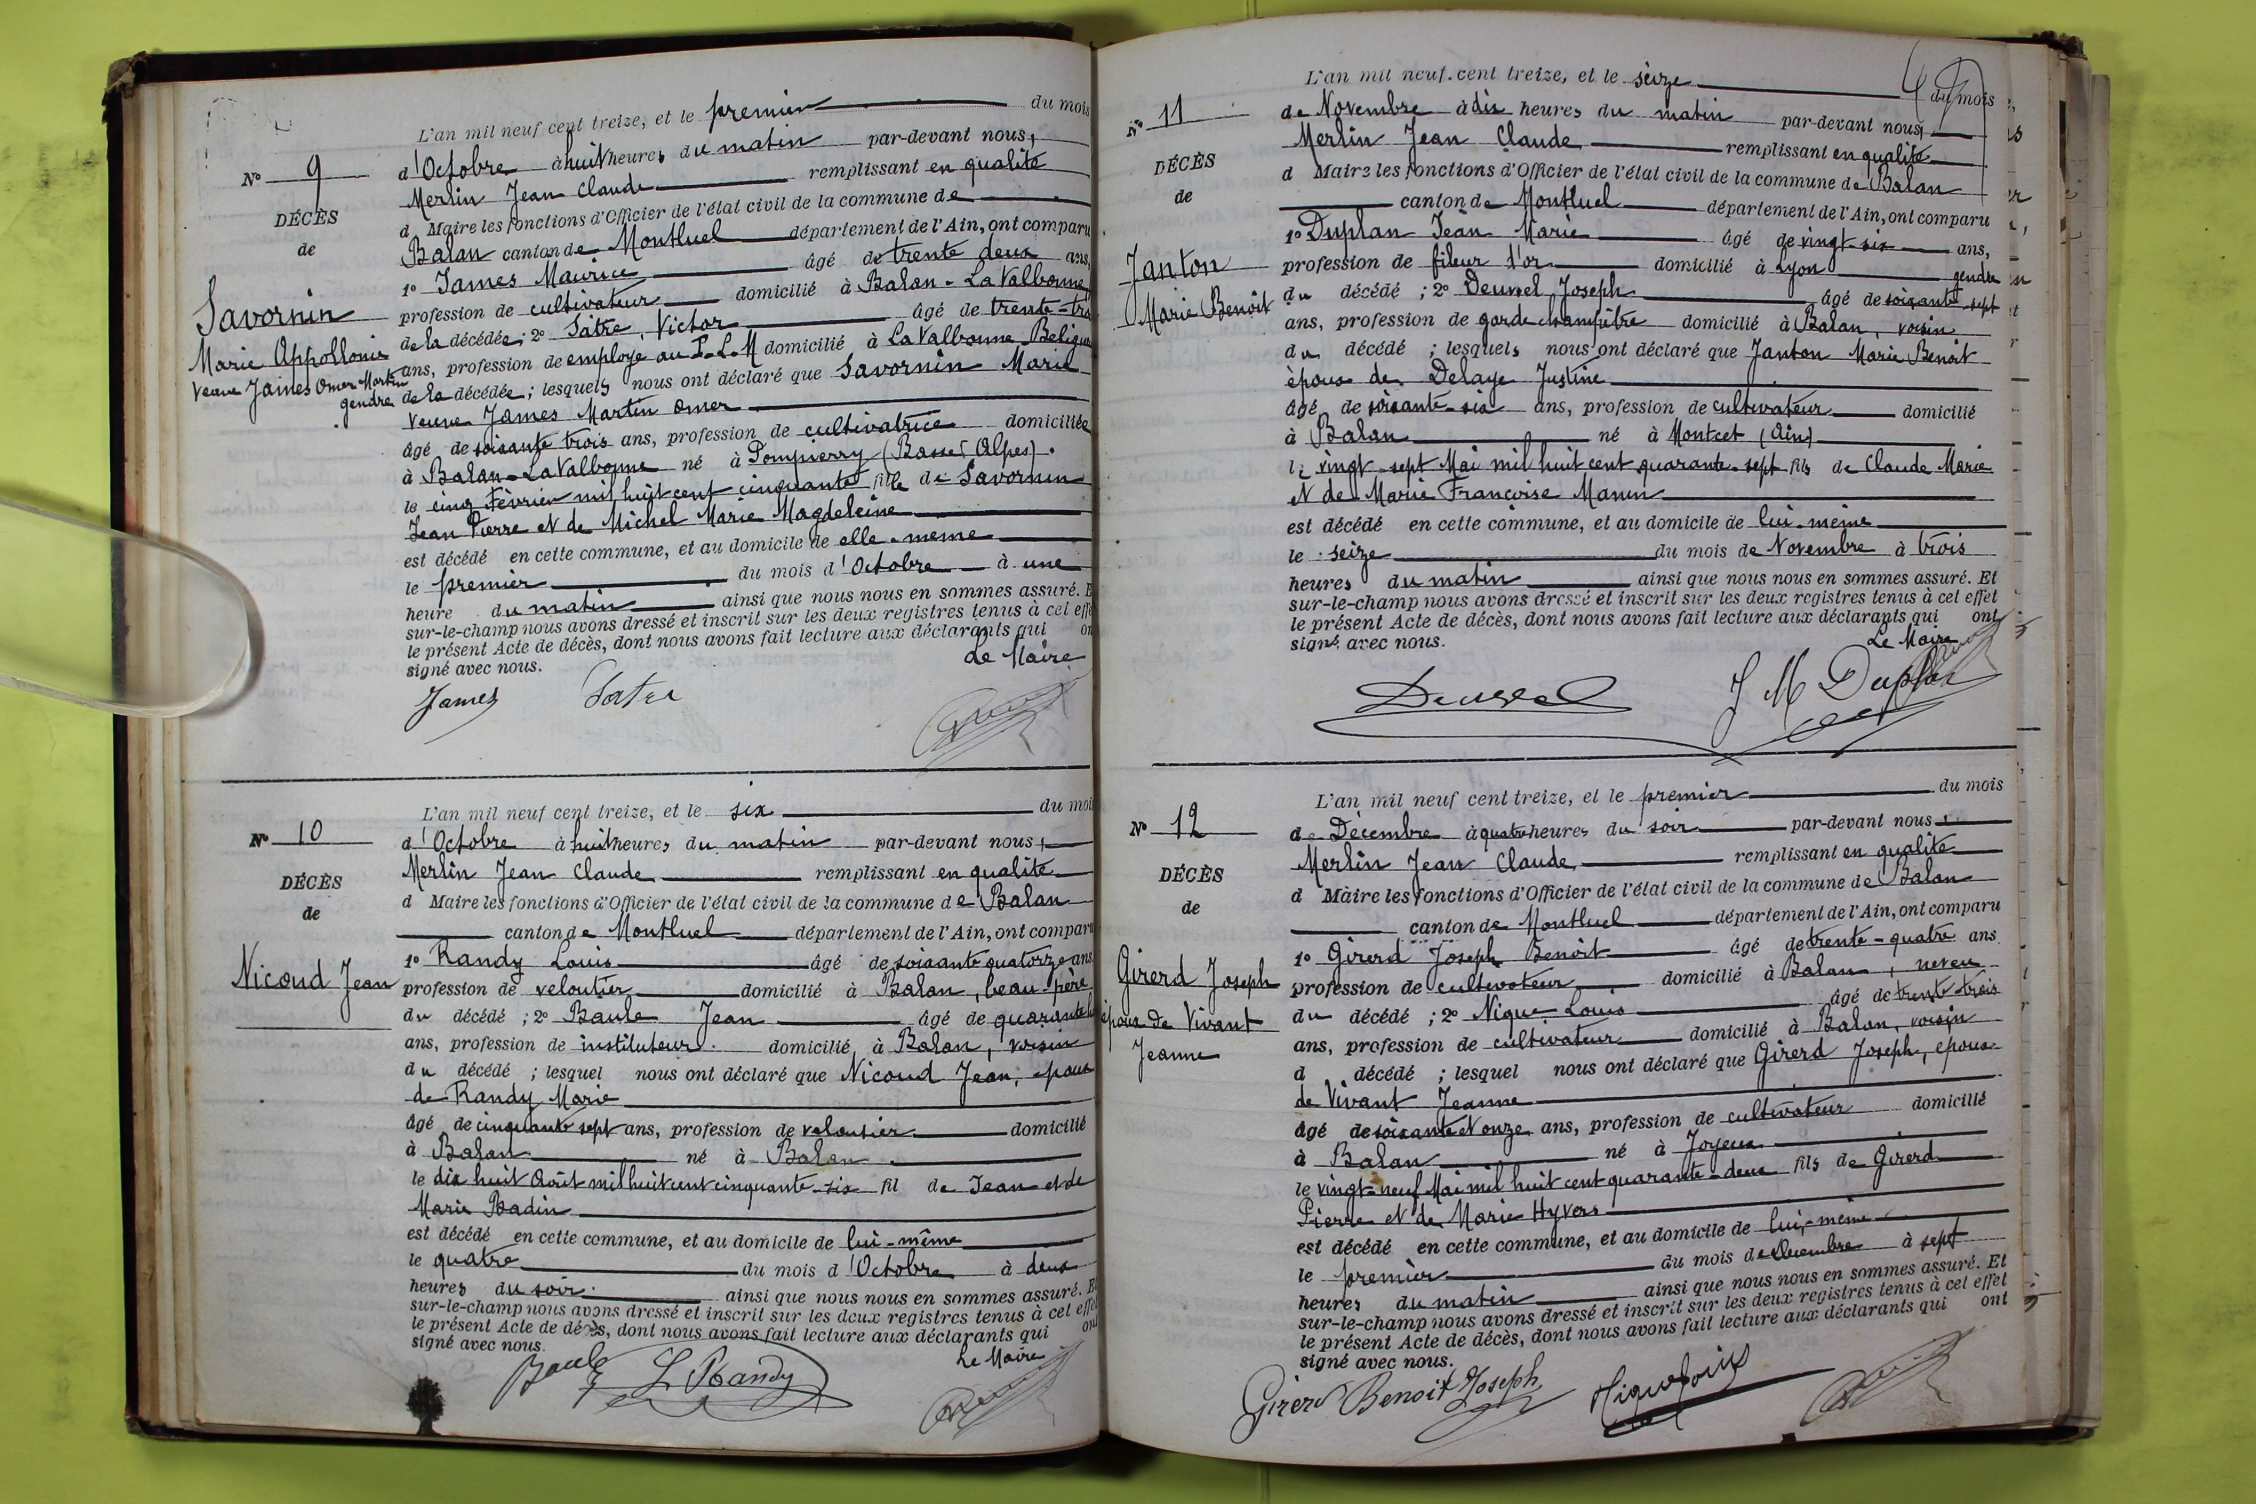 L'an mil neuf cent treize, et le premier du mois
N° 9
d'Octobre à huit heures du matin par-devant nous,
Merlin Jean Claude remplissant en qualité
DÉCÈS
d Maire les fonctions d'Officier de l'état civil de la commune de
de
Balan canton de Montluel département de l'Ain, ont comparu
1° James Maurice âgé de trente deux ans,
Savornin
profession de cultivateur domicilié à Balan - La Valbonne
Marie Appollonie
de la décédée ; 2° Sâtre, Victor âgé de trente-
Veuve James Omer Martin
ans, profession de employé au P.L.M domicilié à La Valbonne
gendre
de la décédée ; lesquels nous ont déclaré que Savornin Marie
Veuve James Martin Omer
âgé de soixante trois ans, profession de cultivatrice domiciliée
à Balan - La Valbonne né à Pompierry (Basses Alpes).
le cinq Février mil huit cent cinquante fille de Savornin
Jean Pierre et de Michel Marie Magdeleine
est décédé en cette commune, et au domicile de elle-meme
le premier du mois d'Octobre à une
heure du matin ainsi que nous nous en sommes assuré. E
sur-le-champ nous avons dressé et inscrit sur les deux registres tenus à cet effe
le présent Acte de décès, dont nous avons fait lecture aux déclarants qui on
signé avec nous.
Le Maire
James Satre
L'an mil neuf cent treize, et le six du mois
N° 10
d'Octobre à huit heures du matin par-devant nous,
Merlin Jean Claude remplissant en qualité
DÉCÈS
d Maire les fonctions d'Officier de l'état civil de la commune de Balan
de
canton de Montluel département de l'Ain, ont comparu
1° Randy Louis âgé de soixante quatorze ans
Nicoud Jean
profession de veloutier domicilié à Balan, beau-père
du décédé ; 2° Baule Jean âgé de quarante
ans, profession de instituteur. domicilié à Balan, voisin
du décédé ; lesquel nous ont déclaré que Nicoud Jean, epoux
de Randy Marie
âgé de cinquante sept ans, profession de veloutier domicilié
à Balan né à Balan
le dix huit Août mil huit cent cinquante-six fil de Jean et de
Marie Badin
est décédé en cette commune, et au domicile de lui-même
le quatre du mois d'Octobre à deux
heures du soir. ainsi que nous nous en sommes assuré. Et
sur-le-champ nous avons dressé et inscrit sur les deux registres tenus à cet effet
le présent Acte de décès, dont nous avons fait lecture aux déclarants qui ont
signé avec nous.
Le Maire
Baule L Randy
L'an mil neuf cent treize, et le seize du mois
N° 11
de Novembre à dix heures du matin par-devant nous,
Merlin Jean Claude remplissant en qualité
DÉCÈS
d Maire les fonctions d'Officier de l'état civil de la commune de Balan
de
canton de Montluel département de l'Ain, ont comparu
1° Duplan Jean Marie âgé de vingt-six ans,
Janton
profession de fileur d'or domicilié à Lyon gendre
Marie Benoit
du décédé ; 2° Deuvel Joseph âgé de soixante sept
ans, profession de garde champêtre domicilié à Balan, voisin
du décédé ; lesquels nous ont déclaré que Janton Marie Benoit
époux de Delaye Justine
âgé de soixante-six ans, profession de cultivateur domicilié
à Balan né à Montcet (Ain)
le vingt-sept Mai mil huit cent quarante-sept fils de Claude Marie
et de Marie Françoise Manin
est décédé en cette commune, et au domicile de lui-meme
le seize du mois de Novembre à trois
heures du matin ainsi que nous nous en sommes assuré. Et
sur-le-champ nous avons dressé et inscrit sur les deux registres tenus à cet effet
le présent Acte de décès, dont nous avons fait lecture aux déclarants qui ont
signé avec nous.
Le Maire
Deuvel J M Duplan
L'an mil neuf cent treize, et le premier du mois
N° 12
de Décembre à quatre heures du soir par-devant nous,
Merlin Jean Claude remplissant en qualité
DÉCÈS
d Maire les fonctions d'Officier de l'état civil de la commune de Balan
de
canton de Montluel département de l'Ain, ont comparu
1° Girerd Joseph Benoit âgé de trente-quatre ans
Girerd Joseph
profession de cultivateur domicilié à Balan, neveu
époux de Vivant
du décédé ; 2° Nique Louis âgé de trente-trois
Jeanne
ans, profession de cultivateur domicilié à Balan, voisin
d décédé ; lesquel nous ont déclaré que Girerd Joseph, epoux
de Vivant Jeanne
âgé de soixante et onze ans, profession de cultivateur domicilié
à Balan né à Joyeux
le vingt-neuf Mai mil huit cent quarante-deux fils de Girerd
Pierre et de Marie Hyvers
est décédé en cette commune, et au domicile de lui-meme
le premier du mois de Decembre à sept
heures du matin ainsi que nous nous en sommes assuré. Et
sur-le-champ nous avons dressé et inscrit sur les deux registres tenus à cet effet
le présent Acte de décès, dont nous avons fait lecture aux déclarants qui ont
signé avec nous.
Girerd Benoit Joseph Nique Louis